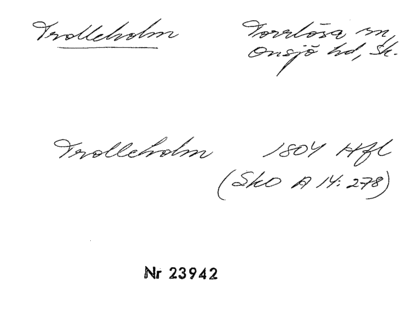 Trolleholm Torrlösa sn,
Onsjö hd, Sk.
Trolleholm 1804 Hfl
(SkO A 14: 278)
Nr 23942